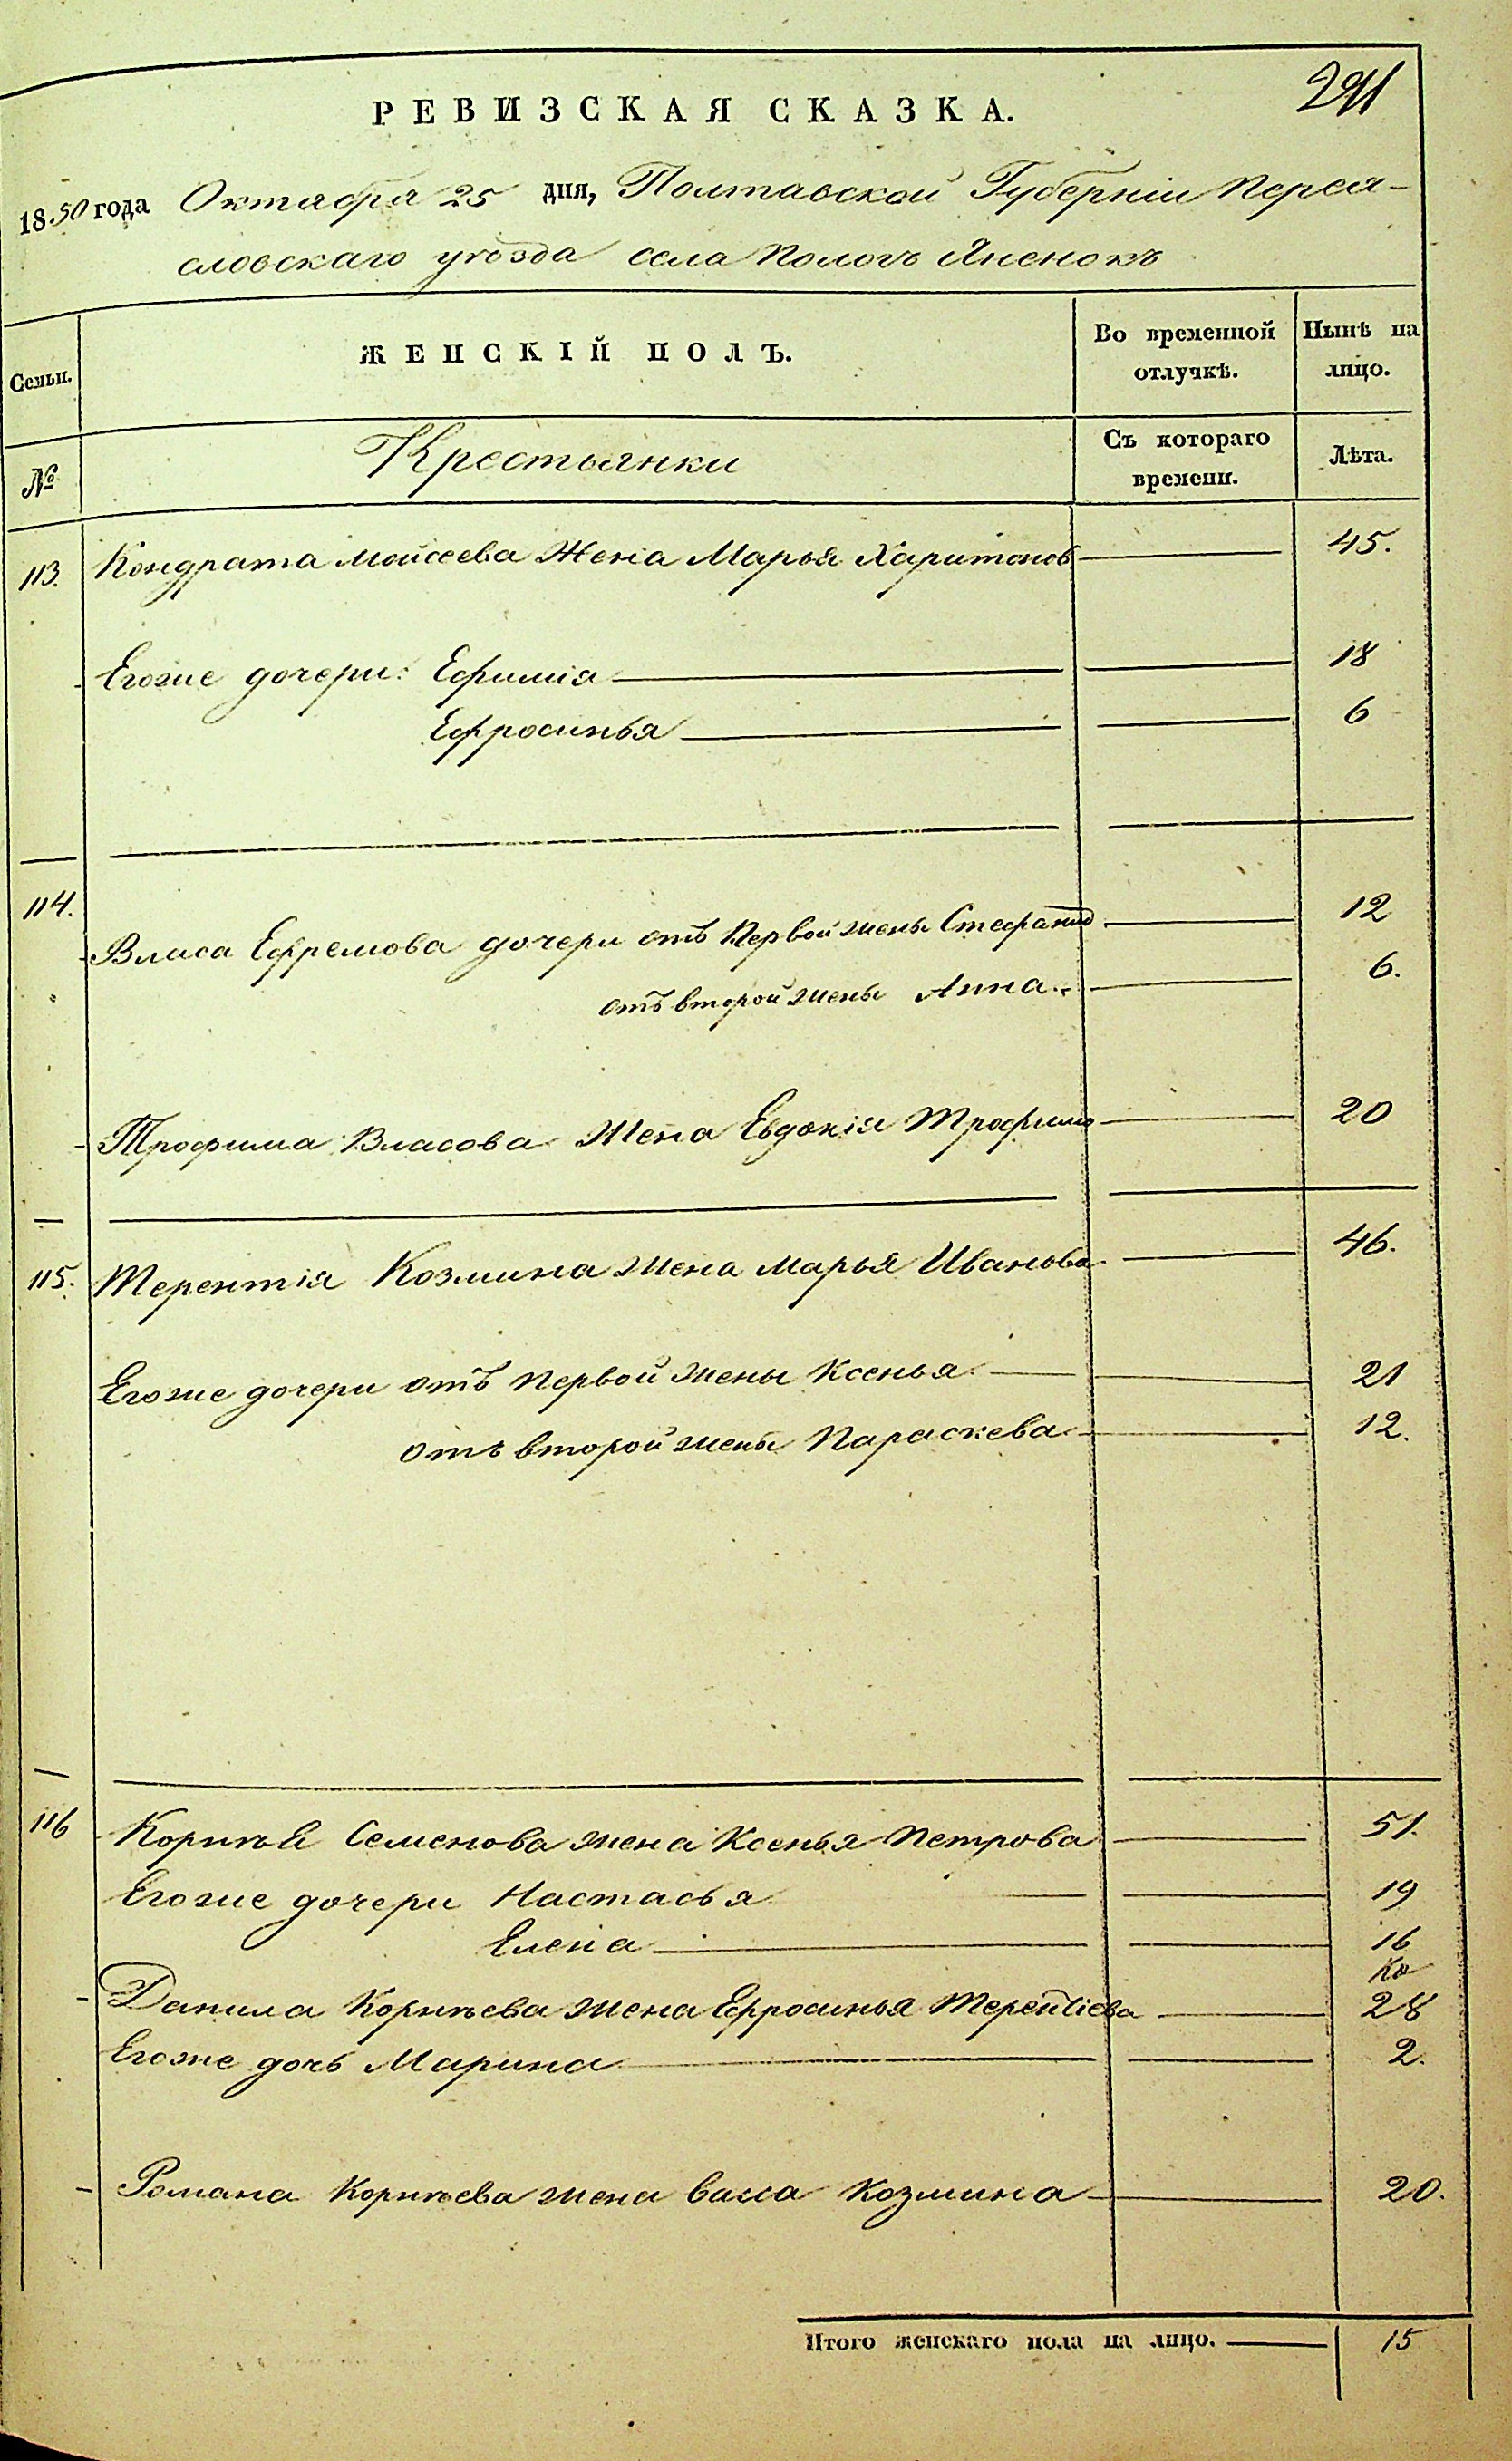 291
РЕВИЗСКАЯ СКАЗКА.
1850 года Октября 25 дня, Полтавской Губерніи Перея-
словскаго уѣзда села Пологъ Яненокъ
Семьи.
ЖЕНСКІЙ ПОЛЪ.
Во временной отлучкѣ.
Нынѣ на лицо.
№
Крестьянки
Съ котораго времени.
Лѣта.
113. Кондрата Моисеева Жена Марья Харитонов 45.
Егоже дочери: Ефимія 18
Ефросинья 6
114.
Власа Ефремова дочери отъ Первой жены Стефанид 12
отъ второй жены Анна. 6.
Трофима Власова Жена Евдокія Трофимо 20
115. Терентія Козмина жена Марья Иванова 46.
Егоже дочери отъ первой жены Ксенья 21
отъ второй жены Параскева 12.
116 Корнѣя Семенова жена Ксенья Петрова 51.
Егоже дочери Настасья 19
Елена 16
Данила Корнѣева жена Ефросинья Терентіева 28
Егоже дочь Марина 2.
Романа Корнѣева жена Васса Козмина 20.
Итого женскаго пола на лицо. 15